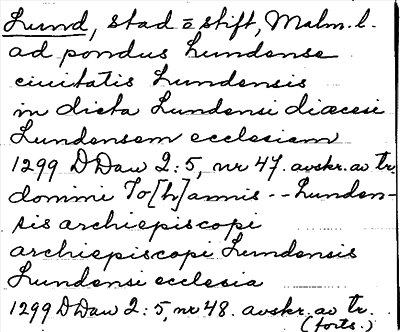 Lund, stad o stift, Malm. l.
ad pondus Lundense
ciuitatis Lundensis
in dicta Lundensi diæcesi
Lundensem ecclesiam
1299 DDan 2:5, nr 47. avskr. av tr.
domini Jo[h]annis -- Lunden-
sis archiepiscopi
archiepiscopi Lundensis
Lundensi ecclesia
1299 DDan 2:5, nr 48. avskr. av tr.
(forts.)